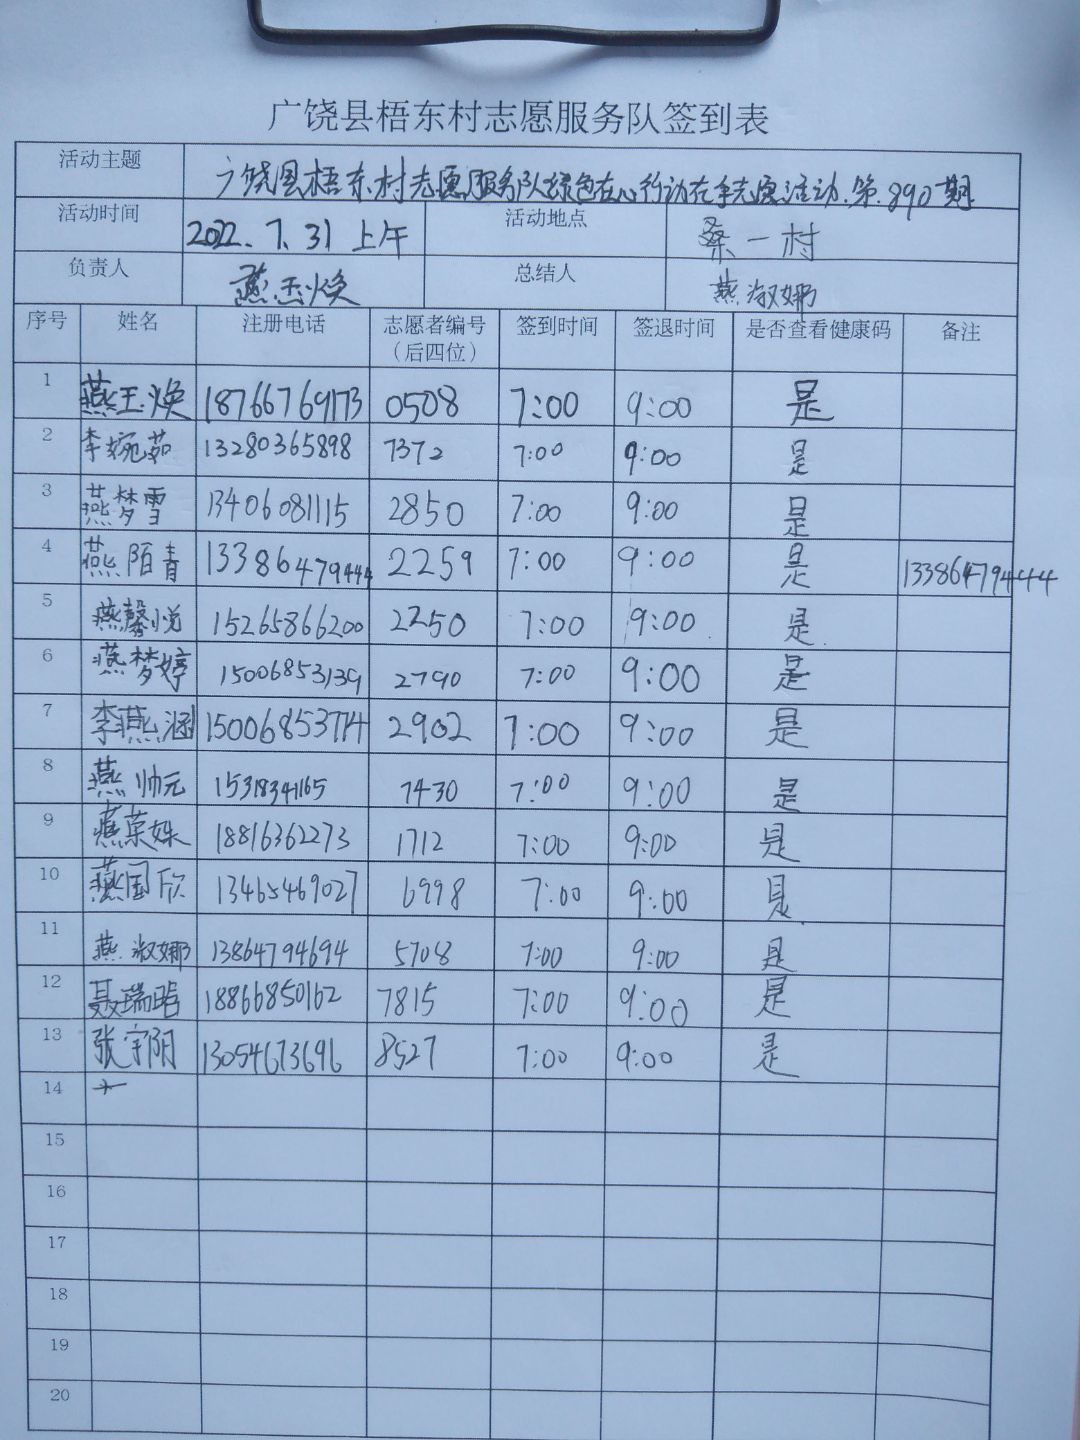 广饶县梧东村志愿服务队签到表
活动主题 广饶县梧东村志愿服务队绿色在心行动在手志愿活动.第.890期
活动时间 2022.7.31上午 活动地点 桑一村
负责人 燕玉焕 总结人 燕淑娜
序号 姓名 注册电话 志愿者编号（后四位） 签到时间 签退时间 是否查看健康码 备注
1 燕玉焕 18766769173 0508 7:00 9:00 是
2 李婉茹 13280365898 7372 7:00 9:00 是
3 燕梦雪 13406081115 2850 7:00 9:00 是
4 燕陌青 13386479444 2259 7:00 9:00 是 13386479444
5 燕馨悦 15265866200 2250 7:00 9:00 是
6 燕梦婷 15006853139 2790 7:00 9:00 是
7 李燕涵 15006853714 2902 7:00 9:00 是
8 燕帅元 15318341165 7430 7:00 9:00 是
9 燕荣姝 18816362273 1712 7:00 9:00 是
10 燕国欣 13465469027 6998 7:00 9:00 是
11 燕淑娜 13864794694 5708 7:00 9:00 是
12 聂瑞晗 18866850162 7815 7:00 9:00 是
13 张宇阳 13054673696 8527 7:00 9:00 是
14
15
16
17
18
19
20